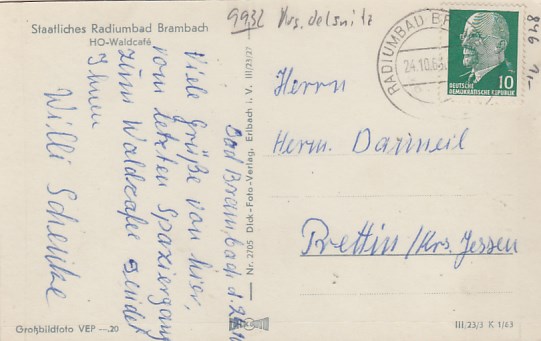 Staatliches Radiumbad Brambach
HO-Waldcafé
9932 Krs. Oelsnitz
Bad Brambach d.
Viele Grüße von hier,
vom letzten Spaziergang
zum Waldcafee sendet
Ihnen
Willi Schenke
Großbildfoto VEP —.20
Nr. 2705 Dick-Foto-Verlag, Erlbach i. V. III/23/27
RADIUMBAD BR
24.10.63
DEUTSCHE
DEMOKRATISCHE REPUBLIK
10
846
Herrn
Herm. Darmeil
Prettin/Krs. Jessen
III/23/3 K 1/63